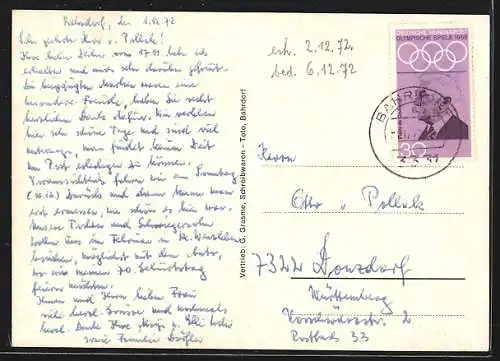 Bahrdorf, den 1.12.72
Sehr geehrter Herr v. Pollack!
Ihre lieben Zeilen vom 17.11. habe ich
erhalten und mich sehr darüber gefreut.
Die beigefügten Marken waren eine
besondere Freude, haben Sie recht
herzlichen Dank dafür. Wir verleben
hier sehr schöne Tage und sind viel
unterwegs, man findet keine Zeit
die Post erledigen zu können.
Voraussichtlich fahren wir am Sonntag
zurück und dann kann man
erst ermessen, wie schön es hier war.
Unsere Tochter und Schwiegersohn
wollen uns im Februar in
besuchen, möglichst mit dem Auto,
da wir meinen 70. Geburtstag
feiern möchten.
Ihnen und Ihrer lieben Frau
viele herzl. Grüsse und nochmals
herzl. Dank Ihre
sowie Familie
erh. 2.12.72
bed. 6.12.72
Vertrieb: G. Grasme, Schreibwaren - Toto, Bahrdorf
DEUTSCHE BUNDESPOST
OLYMPISCHE SPIELE 1968
30
BAHRD
Herrn
Otto v. Pollack
7322 Donzdorf
Württemberg
2
Postfach 33